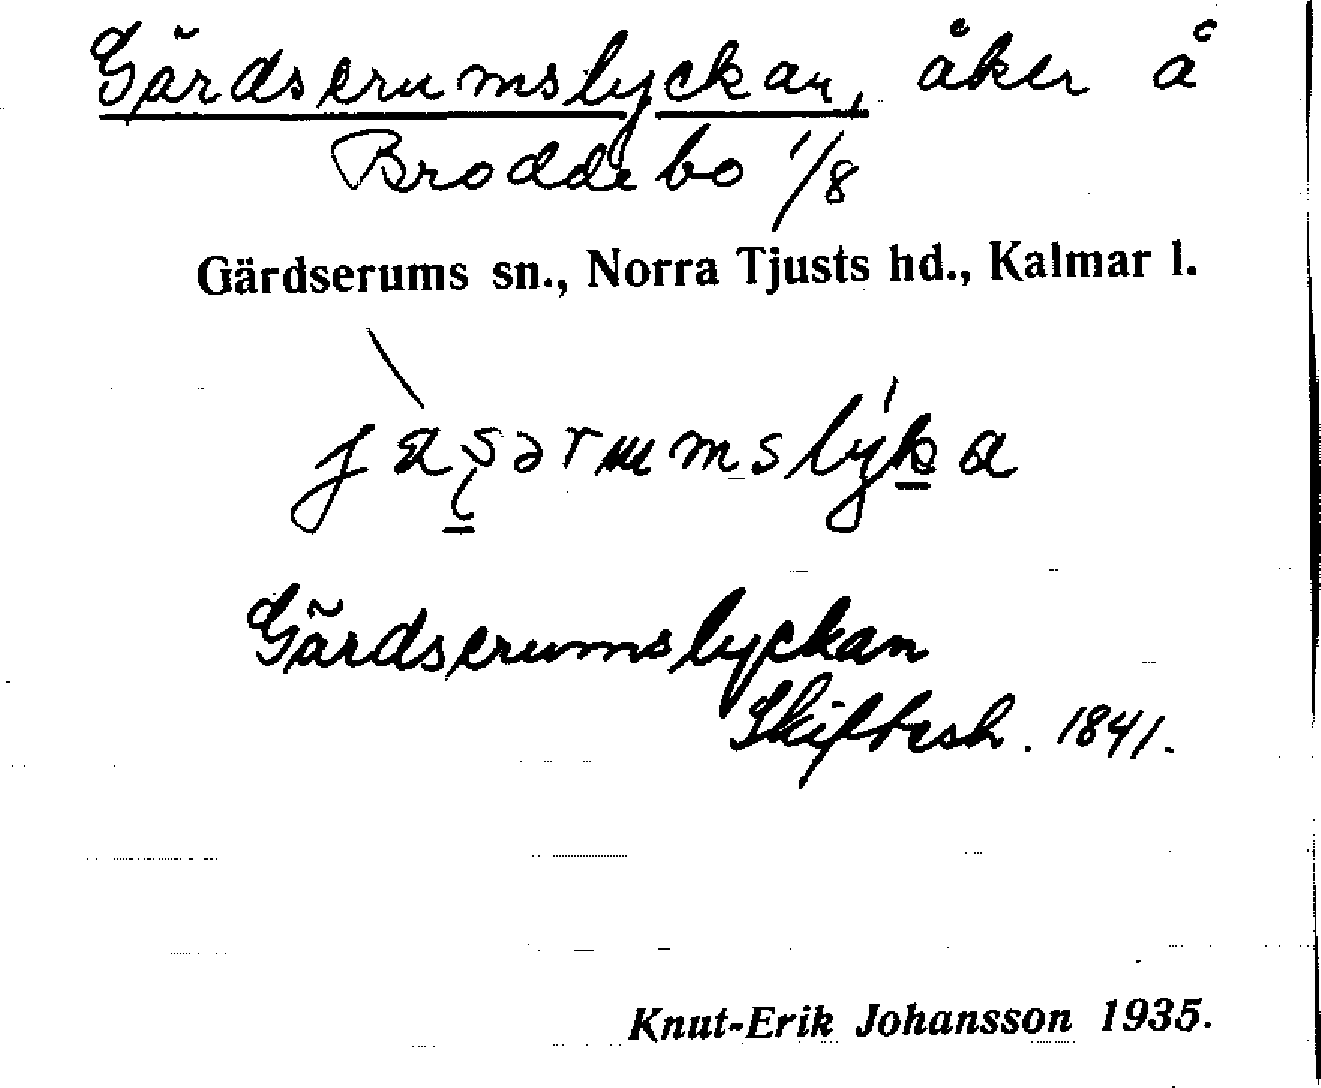 Gärdserumslyckan, åker å
Broddebo 1/8
Gärdserums sn., Norra Tjusts hd., Kalmar l.
Gärdserumslyckan
Skiftesh. 1841.
Knut-Erik Johansson 1935.